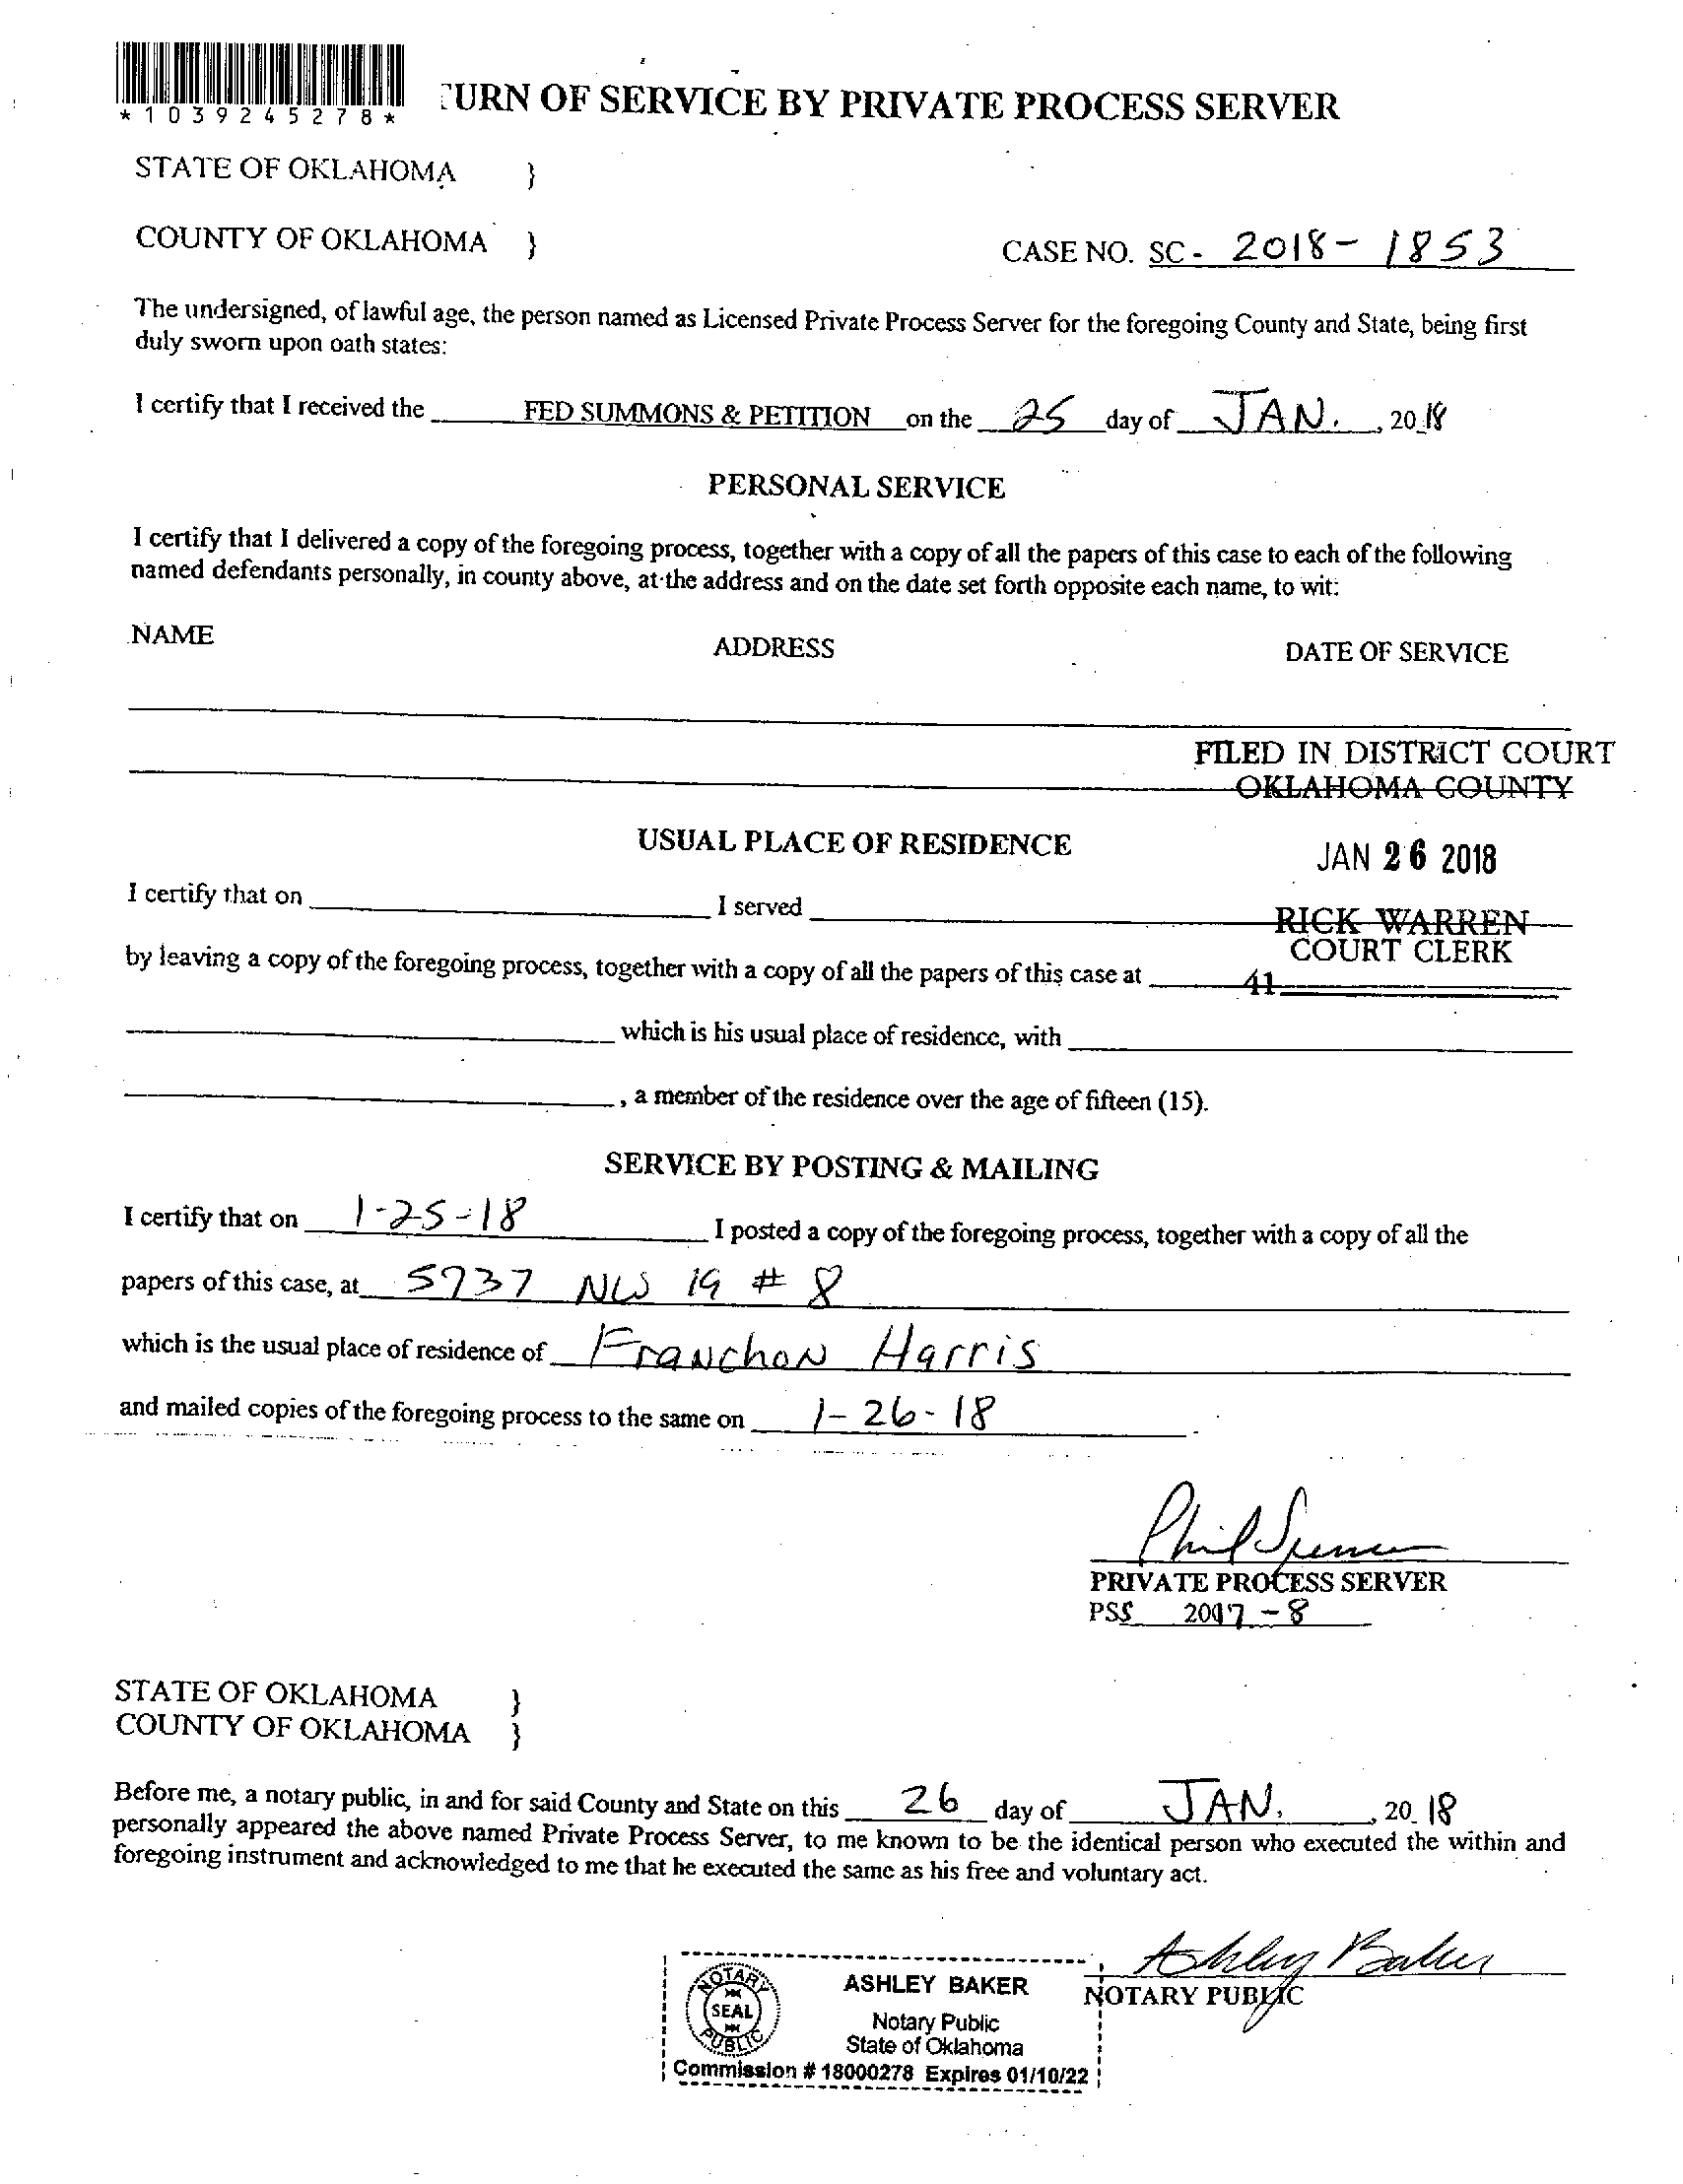 *1039245278*
TURN OF SERVICE BY PRIVATE PROCESS SERVER
STATE OF OKLAHOMA }
COUNTY OF OKLAHOMA }
CASE NO. SC - 2018 - 1853
The undersigned, of lawful age, the person named as Licensed Private Process Server for the foregoing County and State, being first
duly sworn upon oath states:
I certify that I received the FED SUMMONS & PETITION on the 25 day of JAN. , 20 18
PERSONAL SERVICE
I certify that I delivered a copy of the foregoing process, together with a copy of all the papers of this case to each of the following
named defendants personally, in county above, at the address and on the date set forth opposite each name, to wit:
NAME ADDRESS DATE OF SERVICE
FILED IN DISTRICT COURT
OKLAHOMA COUNTY
USUAL PLACE OF RESIDENCE
JAN 26 2018
I certify that on I served
RICK WARREN
COURT CLERK
by leaving a copy of the foregoing process, together with a copy of all the papers of this case at
41
which is his usual place of residence, with
, a member of the residence over the age of fifteen (15).
SERVICE BY POSTING & MAILING
I certify that on 1-25-18 I posted a copy of the foregoing process, together with a copy of all the
papers of this case, at 5737 NW 19 # 8
which is the usual place of residence of Franchon Harris
and mailed copies of the foregoing process to the same on 1-26-18
PRIVATE PROCESS SERVER
PSS 2017 - 8
STATE OF OKLAHOMA }
COUNTY OF OKLAHOMA }
Before me, a notary public, in and for said County and State on this 26 day of JAN. , 20 18
personally appeared the above named Private Process Server, to me known to be the identical person who executed the within and
foregoing instrument and acknowledged to me that he executed the same as his free and voluntary act.
Ashley Baker
NOTARY PUBLIC
NOTARY
SEAL
PUBLIC
ASHLEY BAKER
Notary Public
State of Oklahoma
Commission # 18000278 Expires 01/10/22